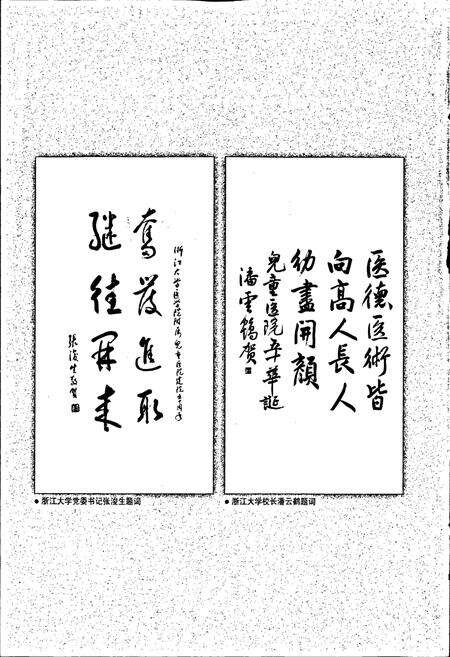 浙江大学医学院附属兒童医院建院五十周年
奮發進取
继往開来
張浚生敬贺
● 浙江大学党委书记张浚生题词
医德医術皆
向高人長人
幼盡開顏
兒童医院五十華誕
潘雲鶴贺
● 浙江大学校长潘云鹤题词